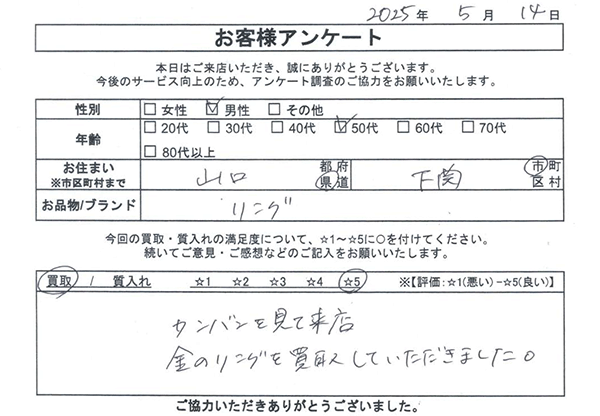 2025年 5月 14日
お客様アンケート
本日はご来店いただき、誠にありがとうございます。
今後のサービス向上のため、アンケート調査のご協力をお願いいたします。
性別 □女性 ☑男性 □その他
年齢 □20代 □30代 □40代 ☑50代 □60代 □70代
□80代以上
お住まい ※市区町村まで 山口 都府県道 下関 市町区村
お品物/ブランド リング
今回の買取・質入れの満足度について、☆1～☆5に○を付けてください。
続いてご意見・ご感想などのご記入をお願いいたします。
買取 / 質入れ ☆1 ☆2 ☆3 ☆4 ☆5 ※【評価:☆1(悪い)-☆5(良い)】
カンバンを見て来店
金のリングを買取していただきました。
ご協力いただきありがとうございました。